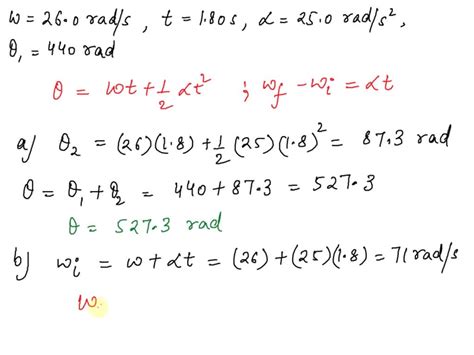 ω = 26.0 rad/s , t = 1.80s , α = 25.0 rad/s²,
θ₁ = 440 rad
θ = ωt + 1/2 αt² ; ω_f - ω_i = αt
a) θ₂ = (26)(1.8) + 1/2 (25)(1.8)² = 87.3 rad
θ = θ₁ + θ₂ = 440 + 87.3 = 527.3
θ = 527.3 rad
b) ω_i = ω + αt = (26) + (25)(1.8) = 71 rad/s
ω